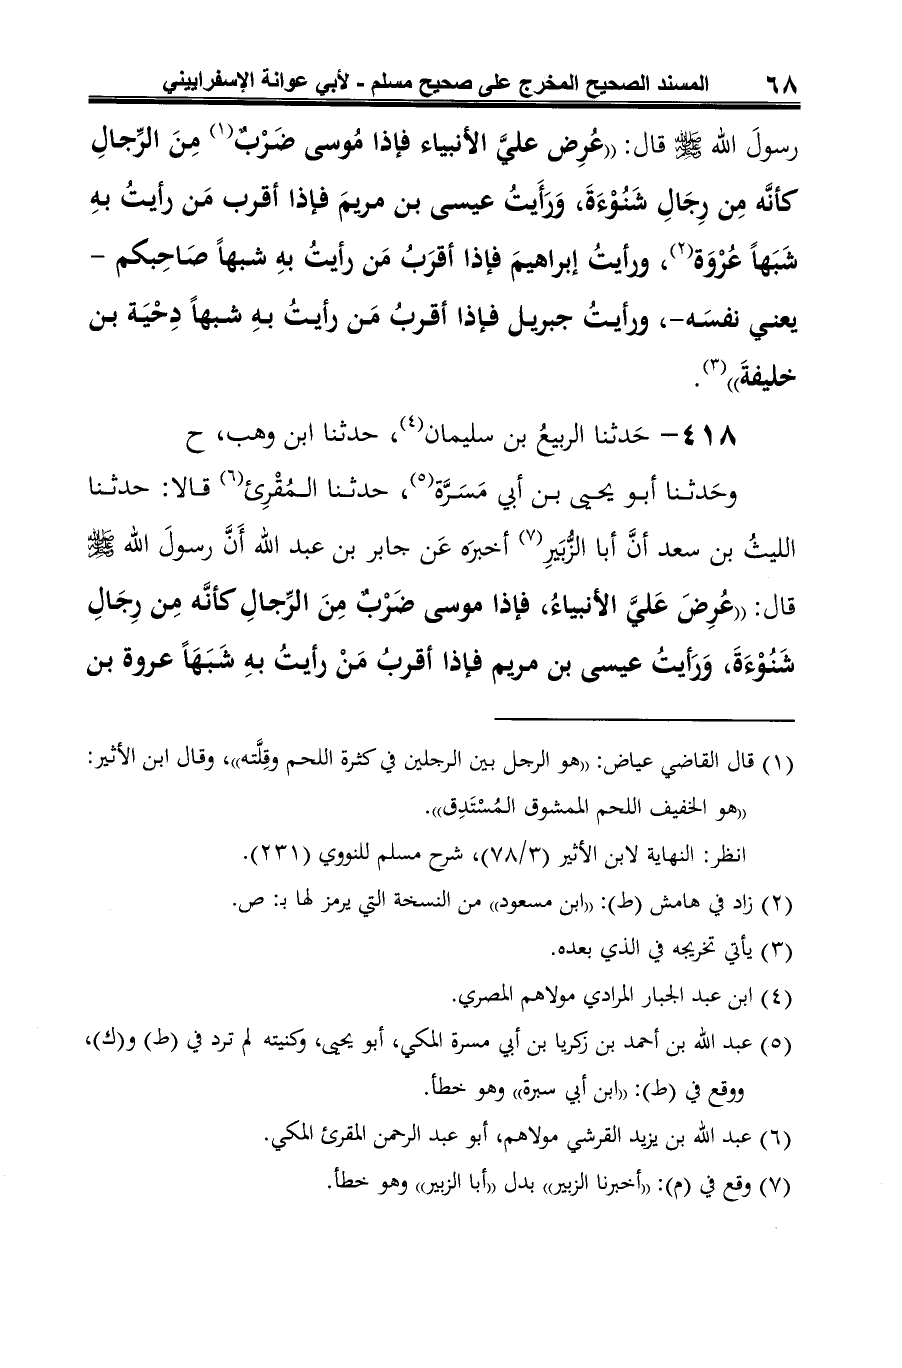 ٦٨ المسند الصحيح المخرج على صحيح مسلم - لأبي عوانة الإسفراييني
رسولَ الله ﷺ قال: ((عُرِض عليَّ الأنبياء فإذا مُوسى ضَرْبٌ(١) مِنَ الرِّجالِ
كأنَّه مِن رِجَالِ شَنُوْءَةَ، وَرَأَيتُ عيسى بن مريمَ فإذا أقرب مَن رأيتُ بهِ
شَبَهاً عُرْوَة(٢)، ورأيتُ إبراهيمَ فإذا أقرَبُ مَن رأيتُ بهِ شبهاً صَاحِبكم -
يعني نفسَه-، ورأيتُ جبريل فإذا أقربُ مَن رأيتُ بهِ شبهاً دِحْيَة بن
خليفةَ))(٣).
٤١٨- حَدثنا الربيعُ بن سليمان(٤)، حدثنا ابن وهب، ح
وحَدثنا أبو يحيى بن أبي مَسَرَّة(٥)، حدثنا المُقْرِئ(٦) قالا: حدثنا
الليثُ بن سعد أنَّ أبا الزُّبَيرِ(٧) أخبرَه عَن جابر بن عبد الله أَنَّ رسولَ الله ﷺ
قال: ((عُرِضَ عَليَّ الأنبياءُ، فإذا موسى ضَرْبٌ مِنَ الرِّجالِ كأنَّه مِن رِجَالِ
شَنُوْءَةَ، وَرَأيتُ عيسى بن مريم فإذا أقربُ مَنْ رأيتُ بهِ شَبَهَاً عروة بن
(١) قال القاضي عياض: ((هو الرجل بين الرجلين في كثرة اللحم وقِلَّته))، وقال ابن الأثير:
((هو الخفيف اللحم الممشوق المُسْتَدِق)).
انظر: النهاية لابن الأثير (٧٨/٣)، شرح مسلم للنووي (٢٣١).
(٢) زاد في هامش (ط): ((ابن مسعود)) من النسخة التي يرمز لها بـ: ص.
(٣) يأتي تخريجه في الذي بعده.
(٤) ابن عبد الجبار المرادي مولاهم المصري.
(٥) عبد الله بن أحمد بن زكريا بن أبي مسرة المكي، أبو يحيى، وكنيته لم ترد في (ط) و(ك)،
ووقع في (ط): ((ابن أبي سبرة)) وهو خطأ.
(٦) عبد الله بن يزيد القرشي مولاهم، أبو عبد الرحمن المقرئ المكي.
(٧) وقع في (م): ((أخبرنا الزبير)) بدل ((أبا الزبير)) وهو خطأ.